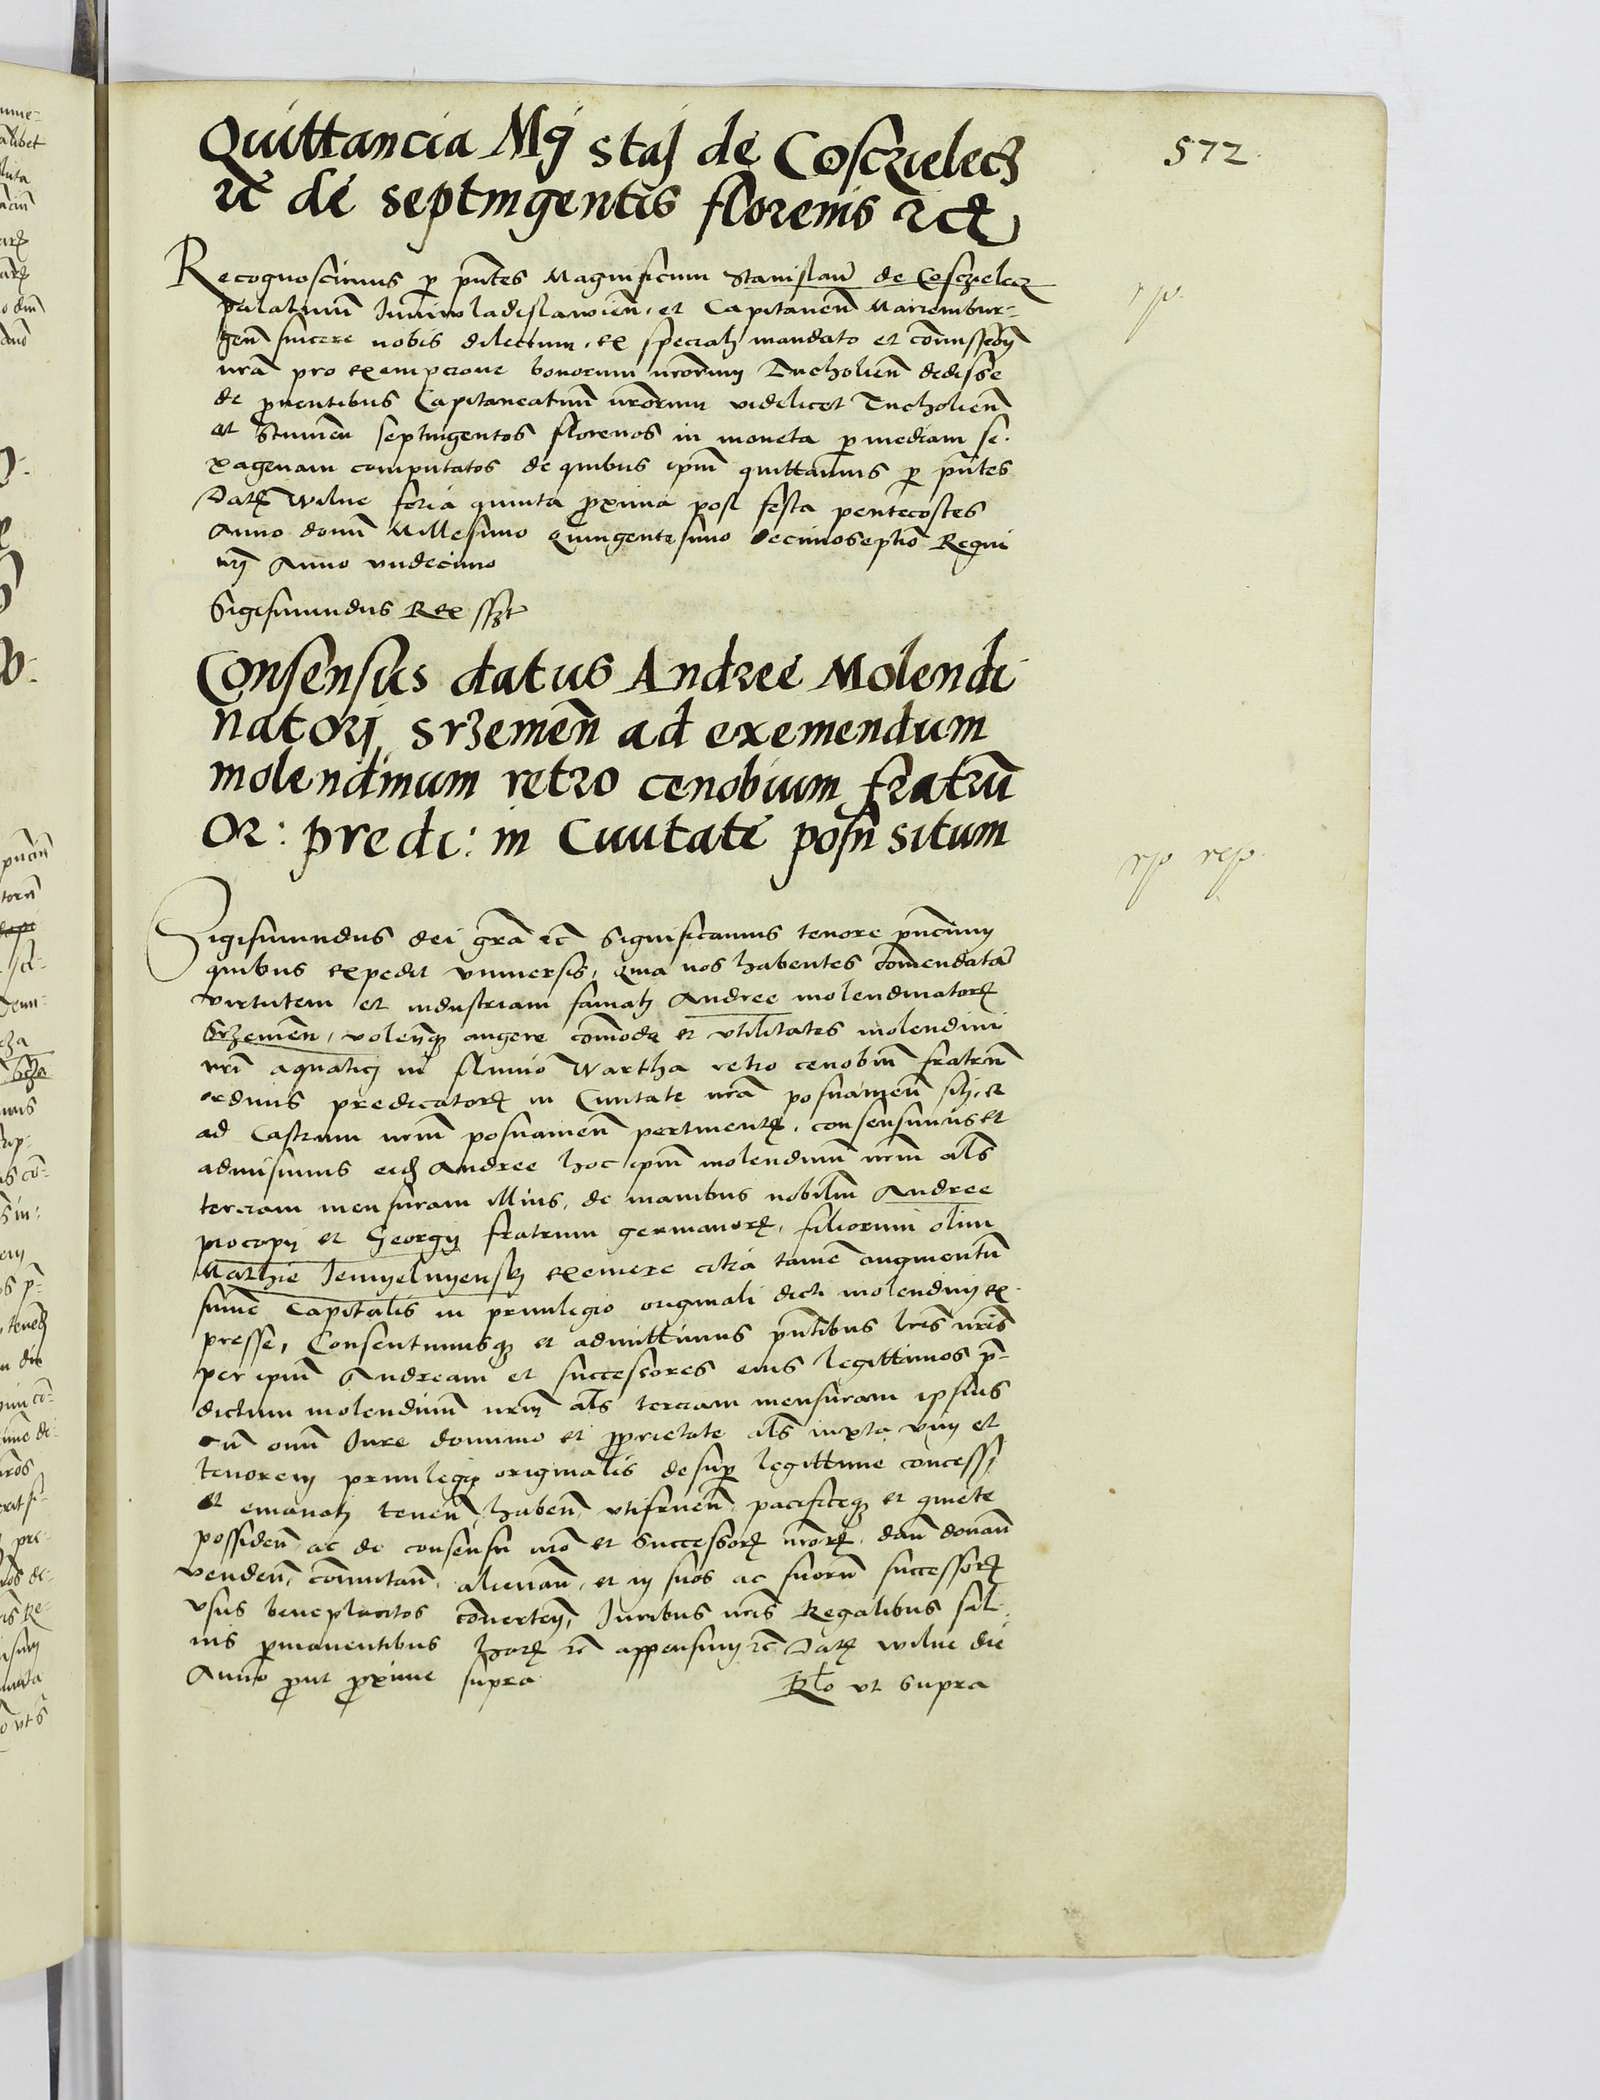 572
Quittancia Mgͥ staj de Cosczielecz
etc de septingentis florenis etc
Recognoscimus ꝑ pn̄tes Magnificum Stanislaū de Cosczielecz
palatinū Iuniwladislawien̄. et Capitaneū Mariembur-
gen̄ sincere nobis dilectum. ex speciali mandato et com̄issione
nr̄a pro exempcione bonorum nr̄orum Tucholien̄ dedisse
de ꝓventibus Capitaneatuū nr̄orum videlicet Tucholien̄
et Stumen̄ septingentos florenos in moneta ꝑ mediam se-
xagenam computatos de quibus ip̄m quittamus ꝑ pn̄tes
Datꝝ Wilne feria quinta ꝓxima post festa pentecostes
Anno domī Millesimo Quingentesimo decimosep̄tio Regni
nrī Anno undecimo
Sigismundus Rex sszt
Consensus datus Andree Molendi
natori srzemen̄ ad exemendum
molendinum retro cenobium fratrū
or: predi: in Civitate posn̄ situm
rp.
rp rep.
Sigismundus dei grā etc Significamus tenore pn̄cium
quibus expedit universis, Quia nos habentes com̄endatā
virtutem et industriam famati Andree molendinatoris
Srzemen̄, volen̄tqꝫ augere com̄oda et utilitates molendini
nrī aquatici in fluvio Wartha retro cenobiū fratrū
ordinis predicatorꝝ in Civitate nr̄a posnanien̄ siti, et
ad Castrum nr̄um posnanien̄ pertinentis, consensimus et
admisimus eidꝫ Andree hoc ip̄m molendinū nr̄m al̄s
terciam mensuram illius, de manibus nobiliū Andree
procopij et Georgij fratrum germanorꝝ, filiorum olim
Mathie Iemyelnyensky exemere citra tamē augmentū
sum̄e Capitalis in privilegio originali dicti molendini ex-
presse, Consentimusqꝫ et admittimus pn̄tibus lr̄is nr̄is
per ip̄m Andream et successores eius legittimos p̄-
dictum molendinū nr̄m al̄s terciam mensuram ipsius
cū om̄i Iure dominio et ꝓprietate al̄s iuxta vim et
tenorem privilegij originalis desuꝑ legittime concessi
et emanati tenen̄, haben̄, utifruen̄, pacificeqꝫ et quiete
possiden̄ ac de consensu nr̄o et successorꝝ nr̄orꝝ, dan̄ donan̄
venden̄, com̄utan̄, alienan̄, et in suos ac suorū successorꝝ
usus beneplacitos conv̄ertem̄, Iuribus nr̄is Regalibus sal-
vis ꝑmanentibus Harꝝ etc appensum etc Datꝝ Wilne die
Anno ꝓut ꝓxime supra Rl̄o ut supra